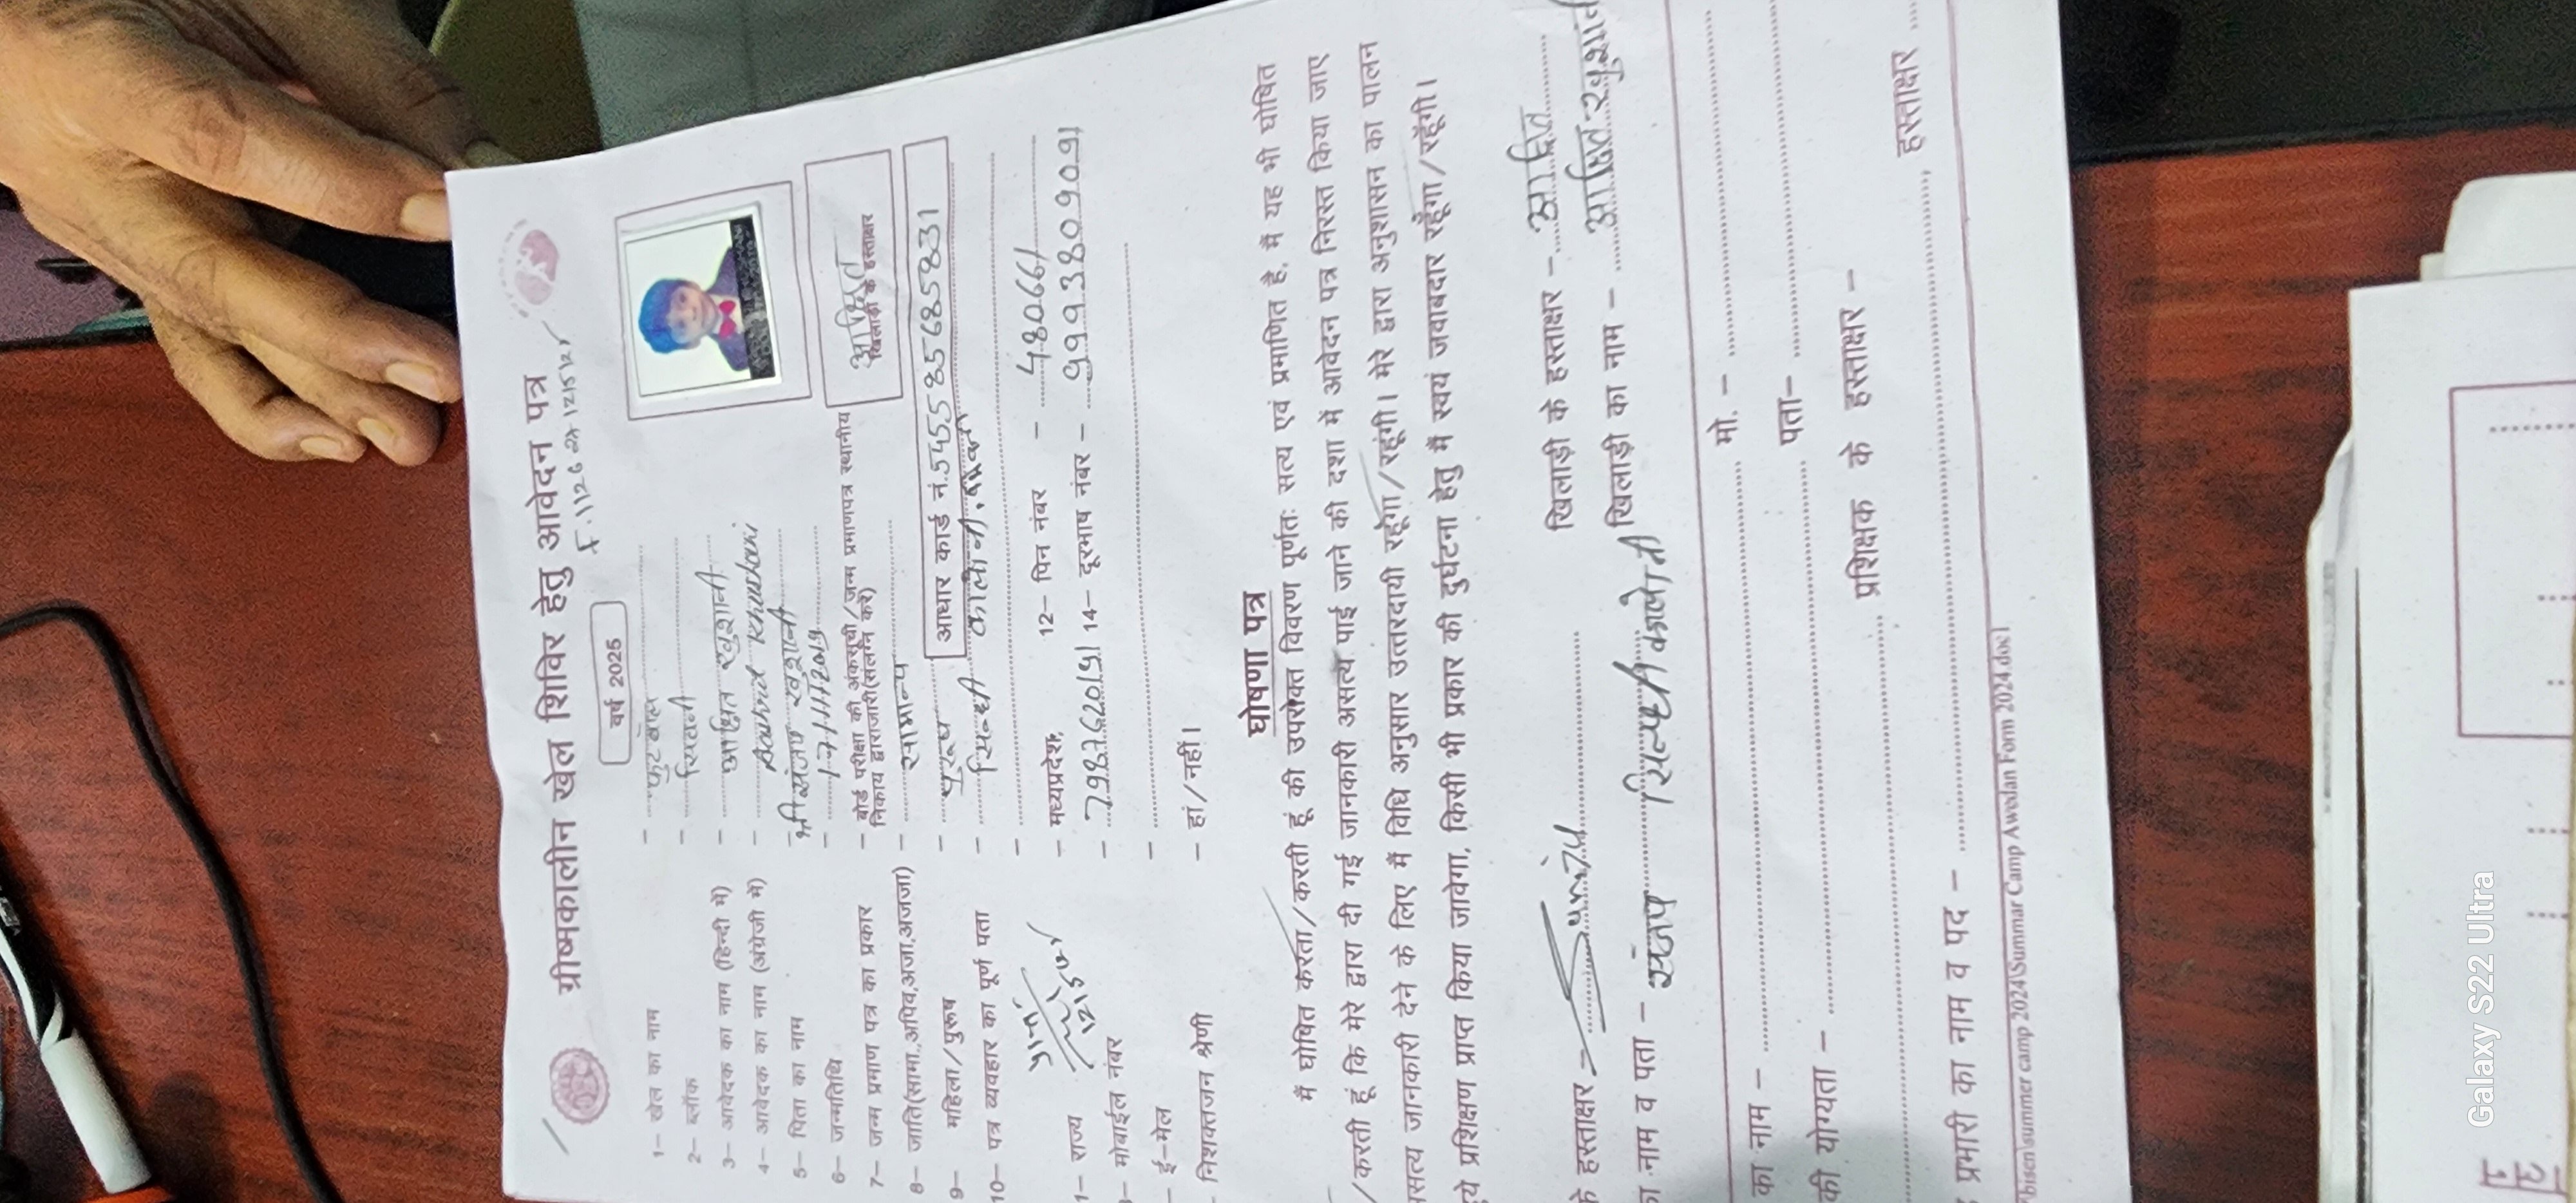 ग्रीष्मकालीन खेल शिविर हेतु आवेदन पत्र
वर्ष 2025
1– खेल का नाम – फुटबॉल
2– ब्लॉक –
3– आवेदक का नाम (हिन्दी में) – खुशानी
4– आवेदक का नाम (अंग्रेजी में) – Khushani
5– पिता का नाम – श्री संजय खुशानी
6– जन्मतिथि – 17/11/2019
7– जन्म प्रमाण पत्र का प्रकार – बोर्ड परीक्षा की अंकसूची/जन्म प्रमाणपत्र स्थानीय
निकाय द्वाराजारी(संलग्न करें)
खिलाड़ी के हस्ताक्षर
8– जाति(सामा.,अपिव,अजा,अजजा) – सामान्य
9– महिला/पुरूष – पुरूष
आधार कार्ड नं. 5455 8568 5831
10– पत्र व्यवहार का पूर्ण पता – सिन्धी कालोनी,
1– राज्य – मध्यप्रदेश, 12– पिन नंबर – 480661
– मोबाईल नंबर – 7987620151 14– दूरभाष नंबर – 9993809091
– ई–मेल –
निशक्तजन श्रेणी – हां/नहीं।
घोषणा पत्र
मैं घोषित करता/करती हूं की उपरोक्त विवरण पूर्णतः सत्य एवं प्रमाणित है, मैं यह भी घोषित
/करती हूं कि मेरे द्वारा दी गई जानकारी असत्य पाई जाने की दशा में आवेदन पत्र निरस्त किया जाए
असत्य जानकारी देने के लिए मैं विधि अनुसार उत्तरदायी रहूंगा/रहूंगी। मेरे द्वारा अनुशासन का पालन
ये प्रशिक्षण प्राप्त किया जावेगा, किसी भी प्रकार की दुर्घटना हेतु मैं स्वयं जवाबदार रहूँगा/रहूँगी।
के हस्ताक्षर – खिलाड़ी के हस्ताक्षर –
का नाम व पता – संजय सिन्धी कालोनी खिलाड़ी का नाम –
का नाम – मो. –
की योग्यता – पता–
प्रशिक्षक के हस्ताक्षर –
प्रभारी का नाम व पद – हस्ताक्षर
summer camp 2024\Summar Camp Awedan Form 2024.doc1
Galaxy S22 Ultra